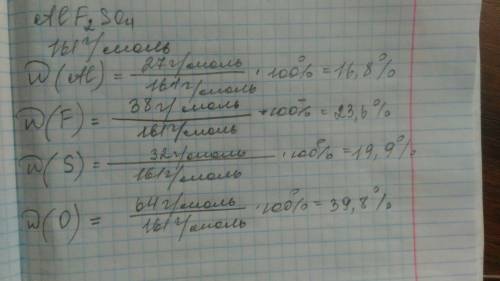 AlF₂SO₄
161 г/моль
ω(Al) = 27 г/моль / 161 г/моль · 100% = 16,8%
ω(F) = 38 г/моль / 161 г/моль · 100% = 23,6%
ω(S) = 32 г/моль / 161 г/моль · 100% = 19,9%
ω(O) = 64 г/моль / 161 г/моль · 100% = 39,8%